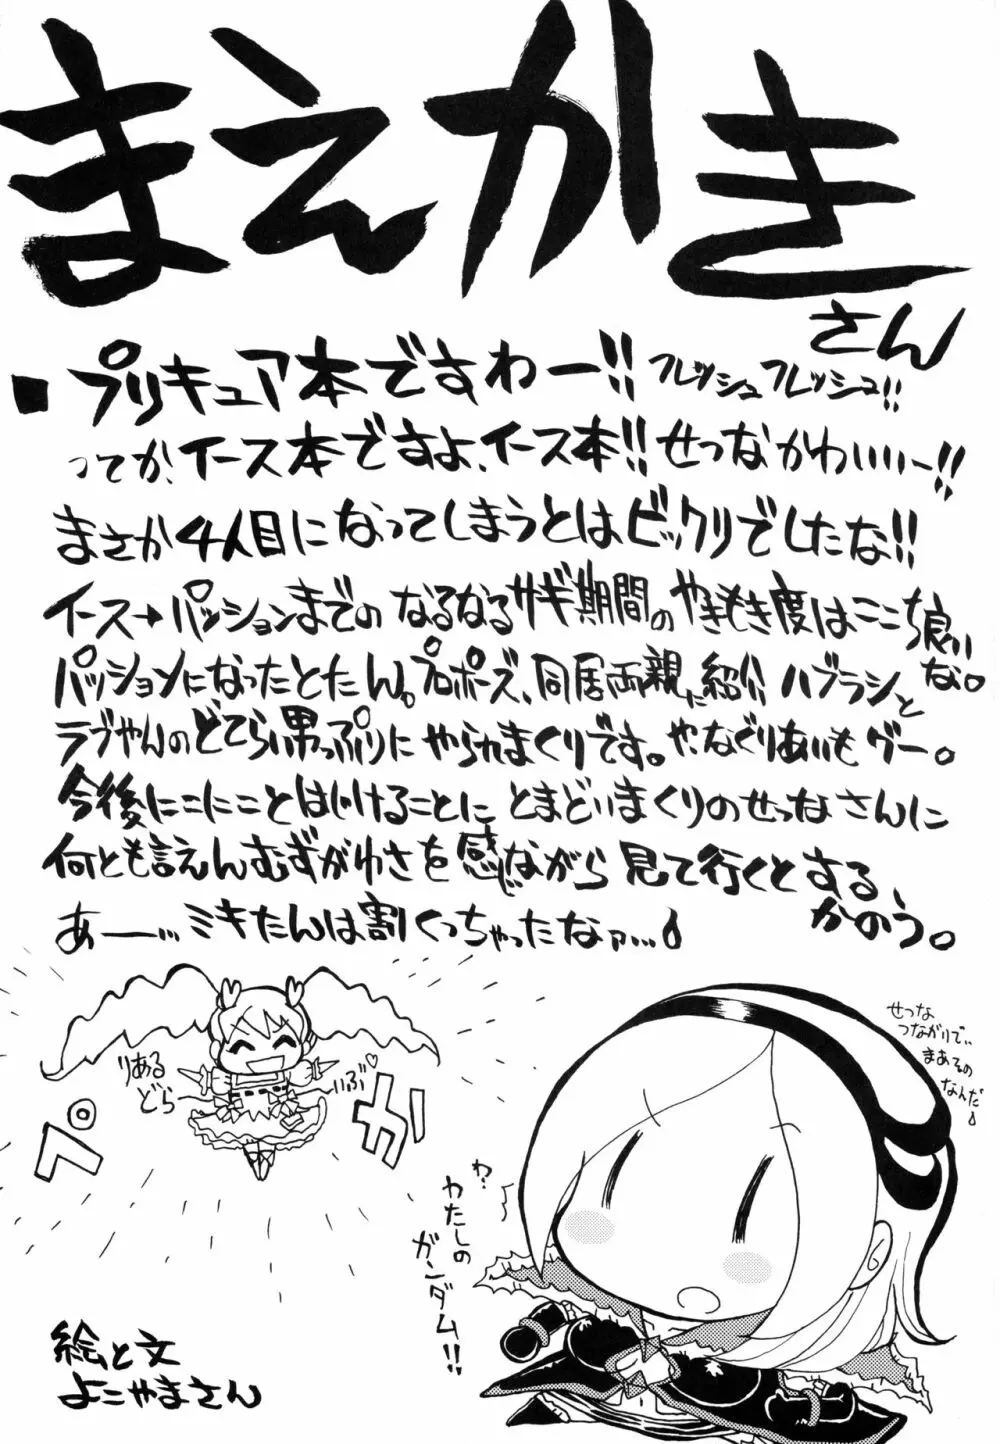 まえかき
さん
■プリキュア本ですわー!!フレッシュフレッシュ!!
ってか、イース本ですよ、イース本!!せつなかわいいー!!
まさか4人目になってしまうとはビックリでしたな!!
イース→パッションまでのなるなるサギ期間のやきもき度はここち良いな。
パッションになったとたん。プロポーズ、同居両親に紹介ハブラシと
ラブやんのどてらい男っぷりにやられまくりです。やなぐりあいもグー。
今後にこにことはじけることにとまどいまくりのせつなさんに
何とも言えんむずがゆさを感じながら見て行くとする、
かのう。
あー…ミキたんは割くっちゃったなァ…
りある
どら
いぶ♥
ペ
カ
せつな
つながりで、
まあその
なんだ
わ?
わたしの
ガンダム!!
絵と文
よこやまさん